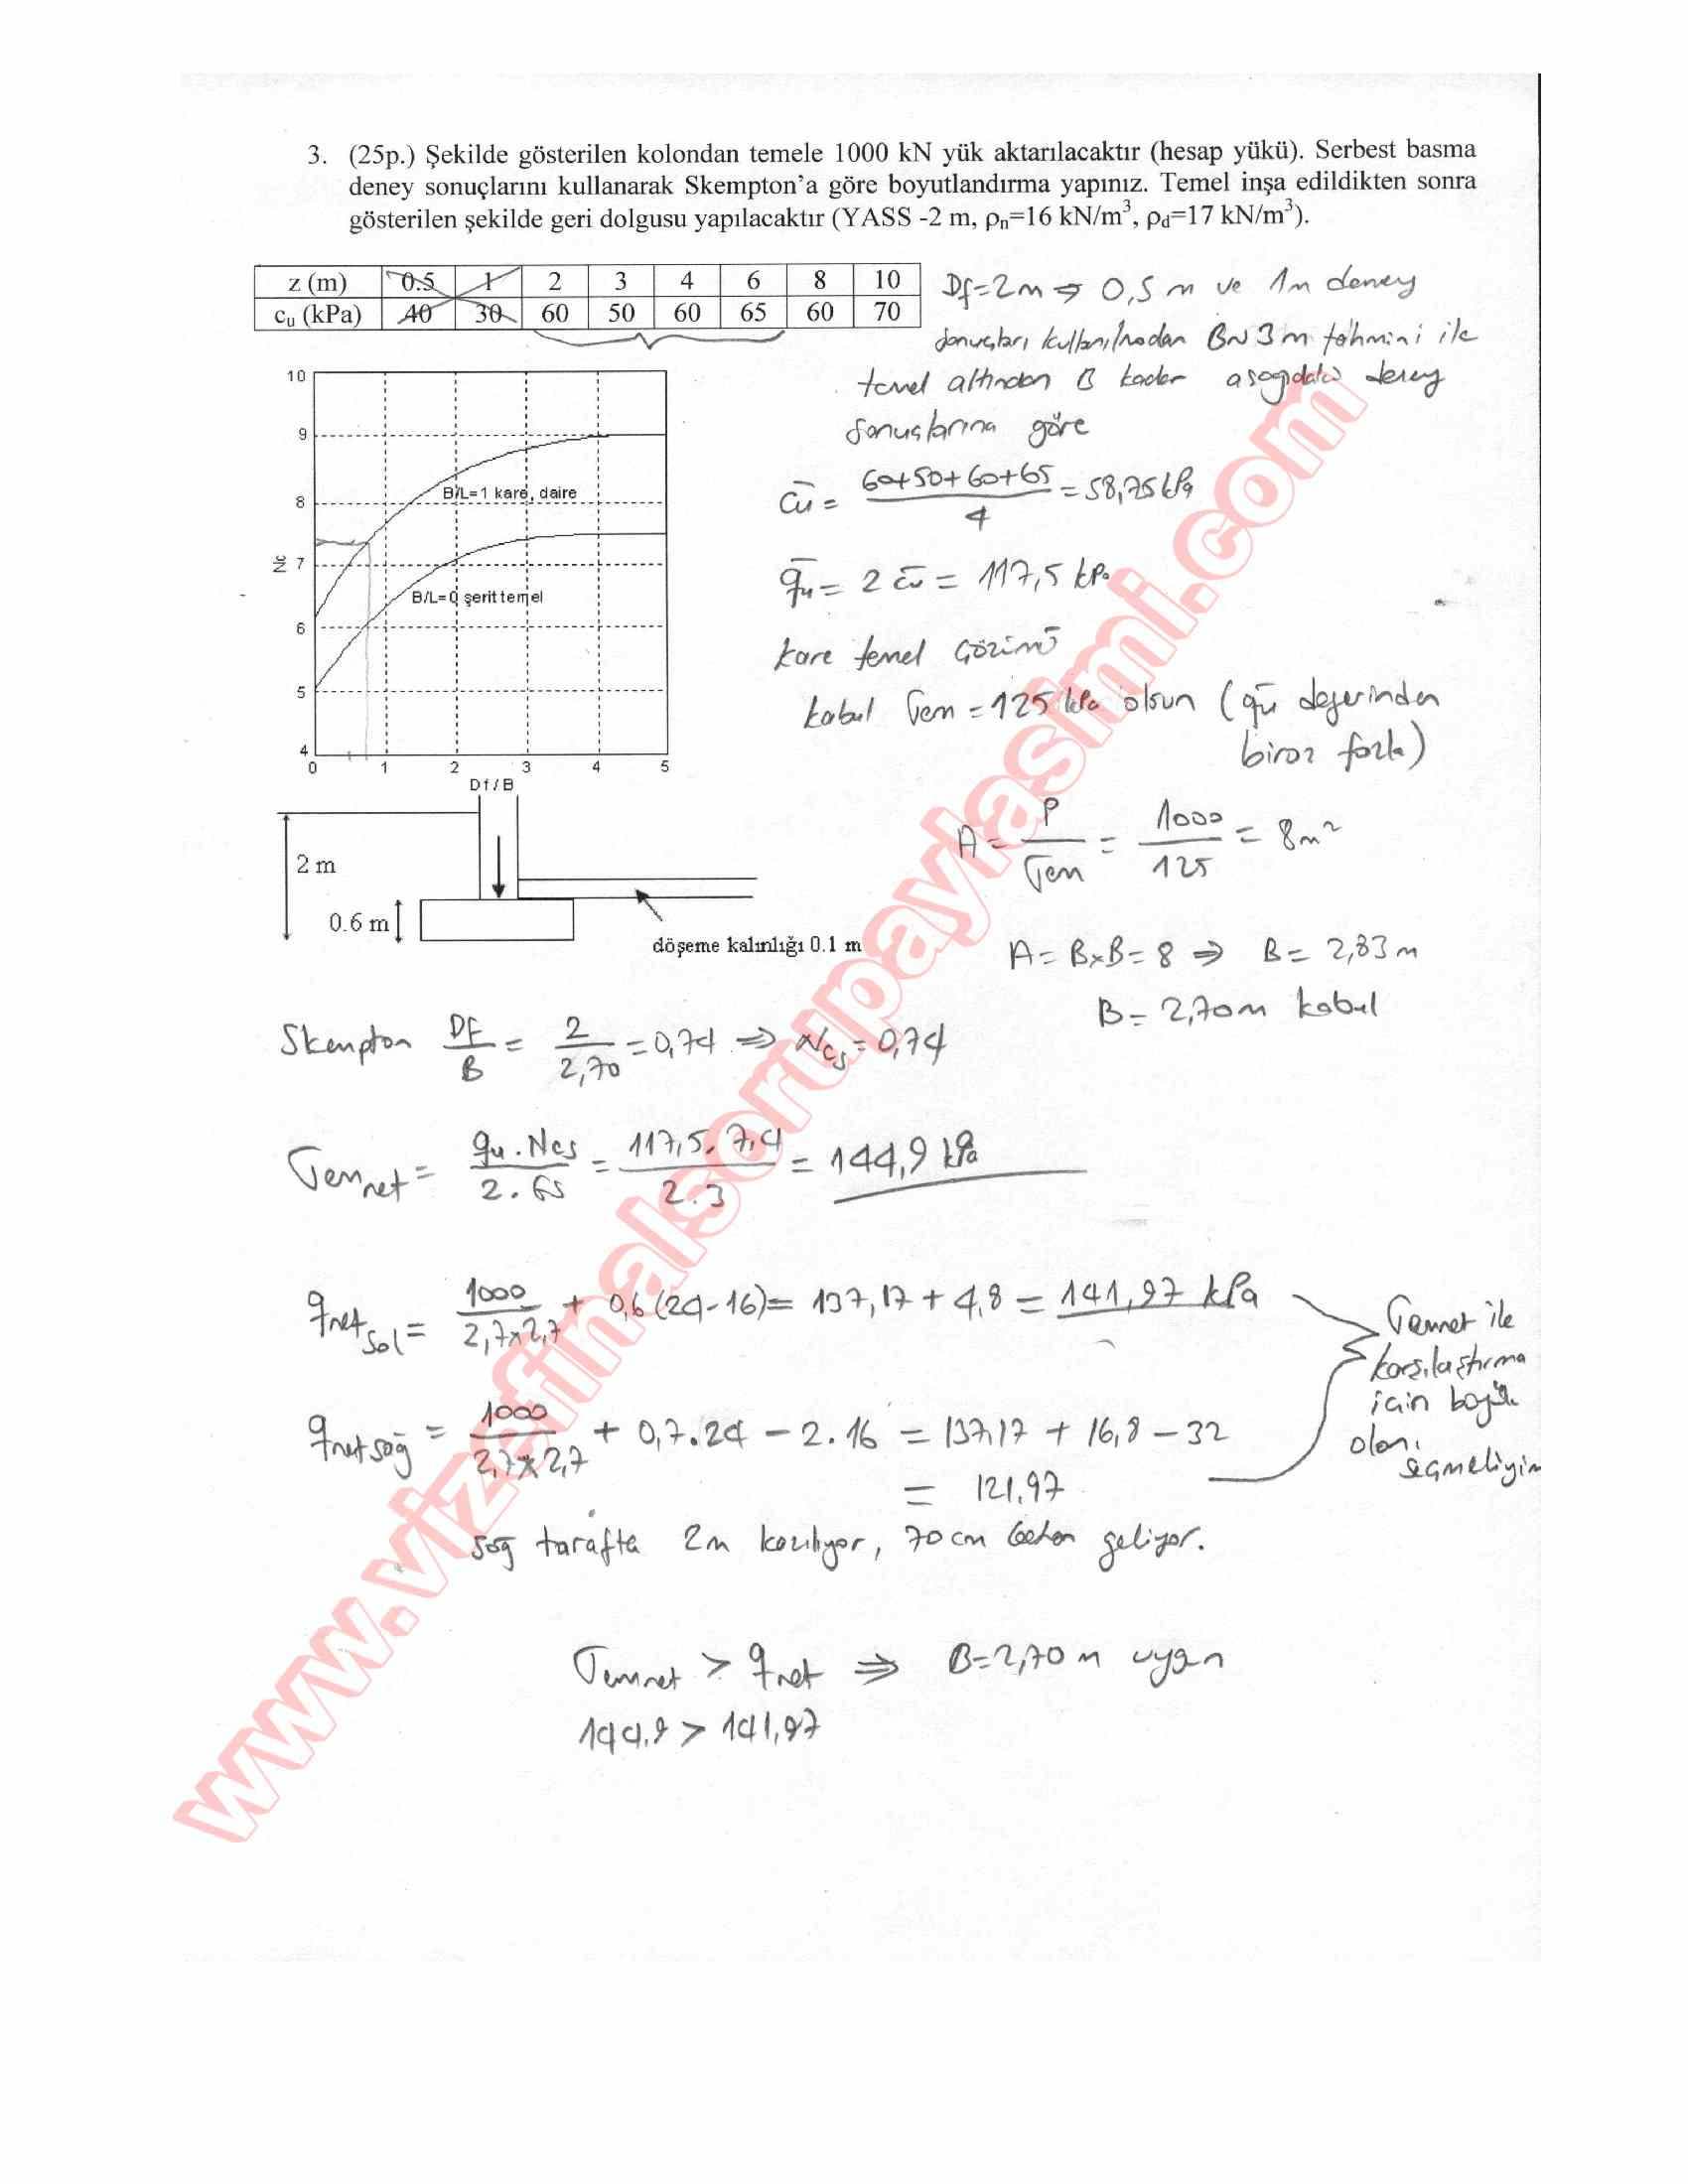 3. (25p.) Şekilde gösterilen kolondan temele 1000 kN yük aktarılacaktır (hesap yükü). Serbest basma
deney sonuçlarını kullanarak Skempton'a göre boyutlandırma yapınız. Temel inşa edildikten sonra
gösterilen şekilde geri dolgusu yapılacaktır (YASS -2 m, ρn=16 kN/m³, ρd=17 kN/m³).
z (m) 0.5 1 2 3 4 6 8 10
cu (kPa) 40 30 60 50 60 65 60 70
Df=2m ⇒ 0,5 m ve 1m deney
sonuçları kullanılmadan B~3m tahmini ile
temel altından B kadar aşağıdaki deney
sonuçlarına göre
cu = 60+50+60+65 / 4 = 58,75 kPa
qu = 2 cu = 117,5 kPa
kare temel çözümü
kabul σem = 125 kPa olsun (qu değerinden
biraz fazla)
A = P / σem = 1000 / 125 = 8m²
A = B×B = 8 ⇒ B = 2,83 m
B = 2,70m kabul
10
9
8
7
6
5
4
Nc
B/L=1 kare, daire
B/L=0 şerit temel
0 1 2 3 4 5
Df / B
2 m
0.6 m
döşeme kalınlığı 0.1 m
Skempton Df / B = 2 / 2,70 = 0,74 ⇒ Ncs = 0,74
σemnet = qu . Ncs / 2 . Gs = 117,5 . 7,4 / 2 . 3 = 144,9 kPa
qnet sol = 1000 / 2,7×2,7 + 0,6 (24-16) = 137,17 + 4,8 = 141,97 kPa
qnet sağ = 1000 / 2,7×2,7 + 0,7 . 24 - 2 . 16 = 137,17 + 16,8 - 32
= 121,97
σemnet ile
karşılaştırma
için büyük
olanı
seçmeliyim
sağ tarafta 2m kazılıyor, 70cm beton geliyor.
σemnet > qnet ⇒ B=2,70 m uygun
144,9 > 141,97
www.vizefinalsorupaylasimi.com